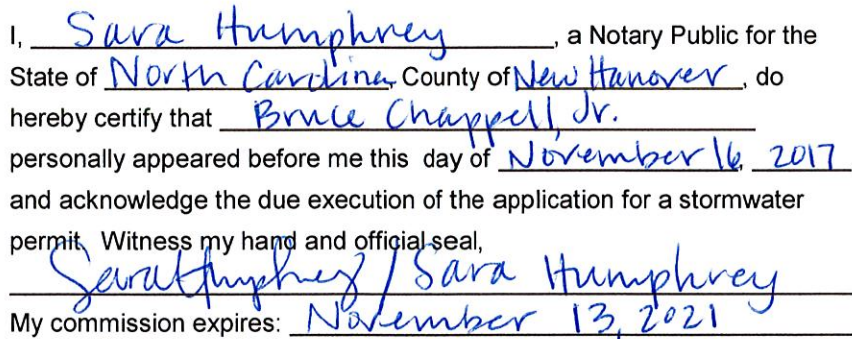 I, Sara Humphrey, a Notary Public for the
State of North Carolina, County of New Hanover, do
hereby certify that Bruce Chappell, Jr.
personally appeared before me this day of November 16, 2017
and acknowledge the due execution of the application for a stormwater
permit. Witness my hand and official seal,
Sara Humphrey / Sara Humphrey
My commission expires: November 13, 2021